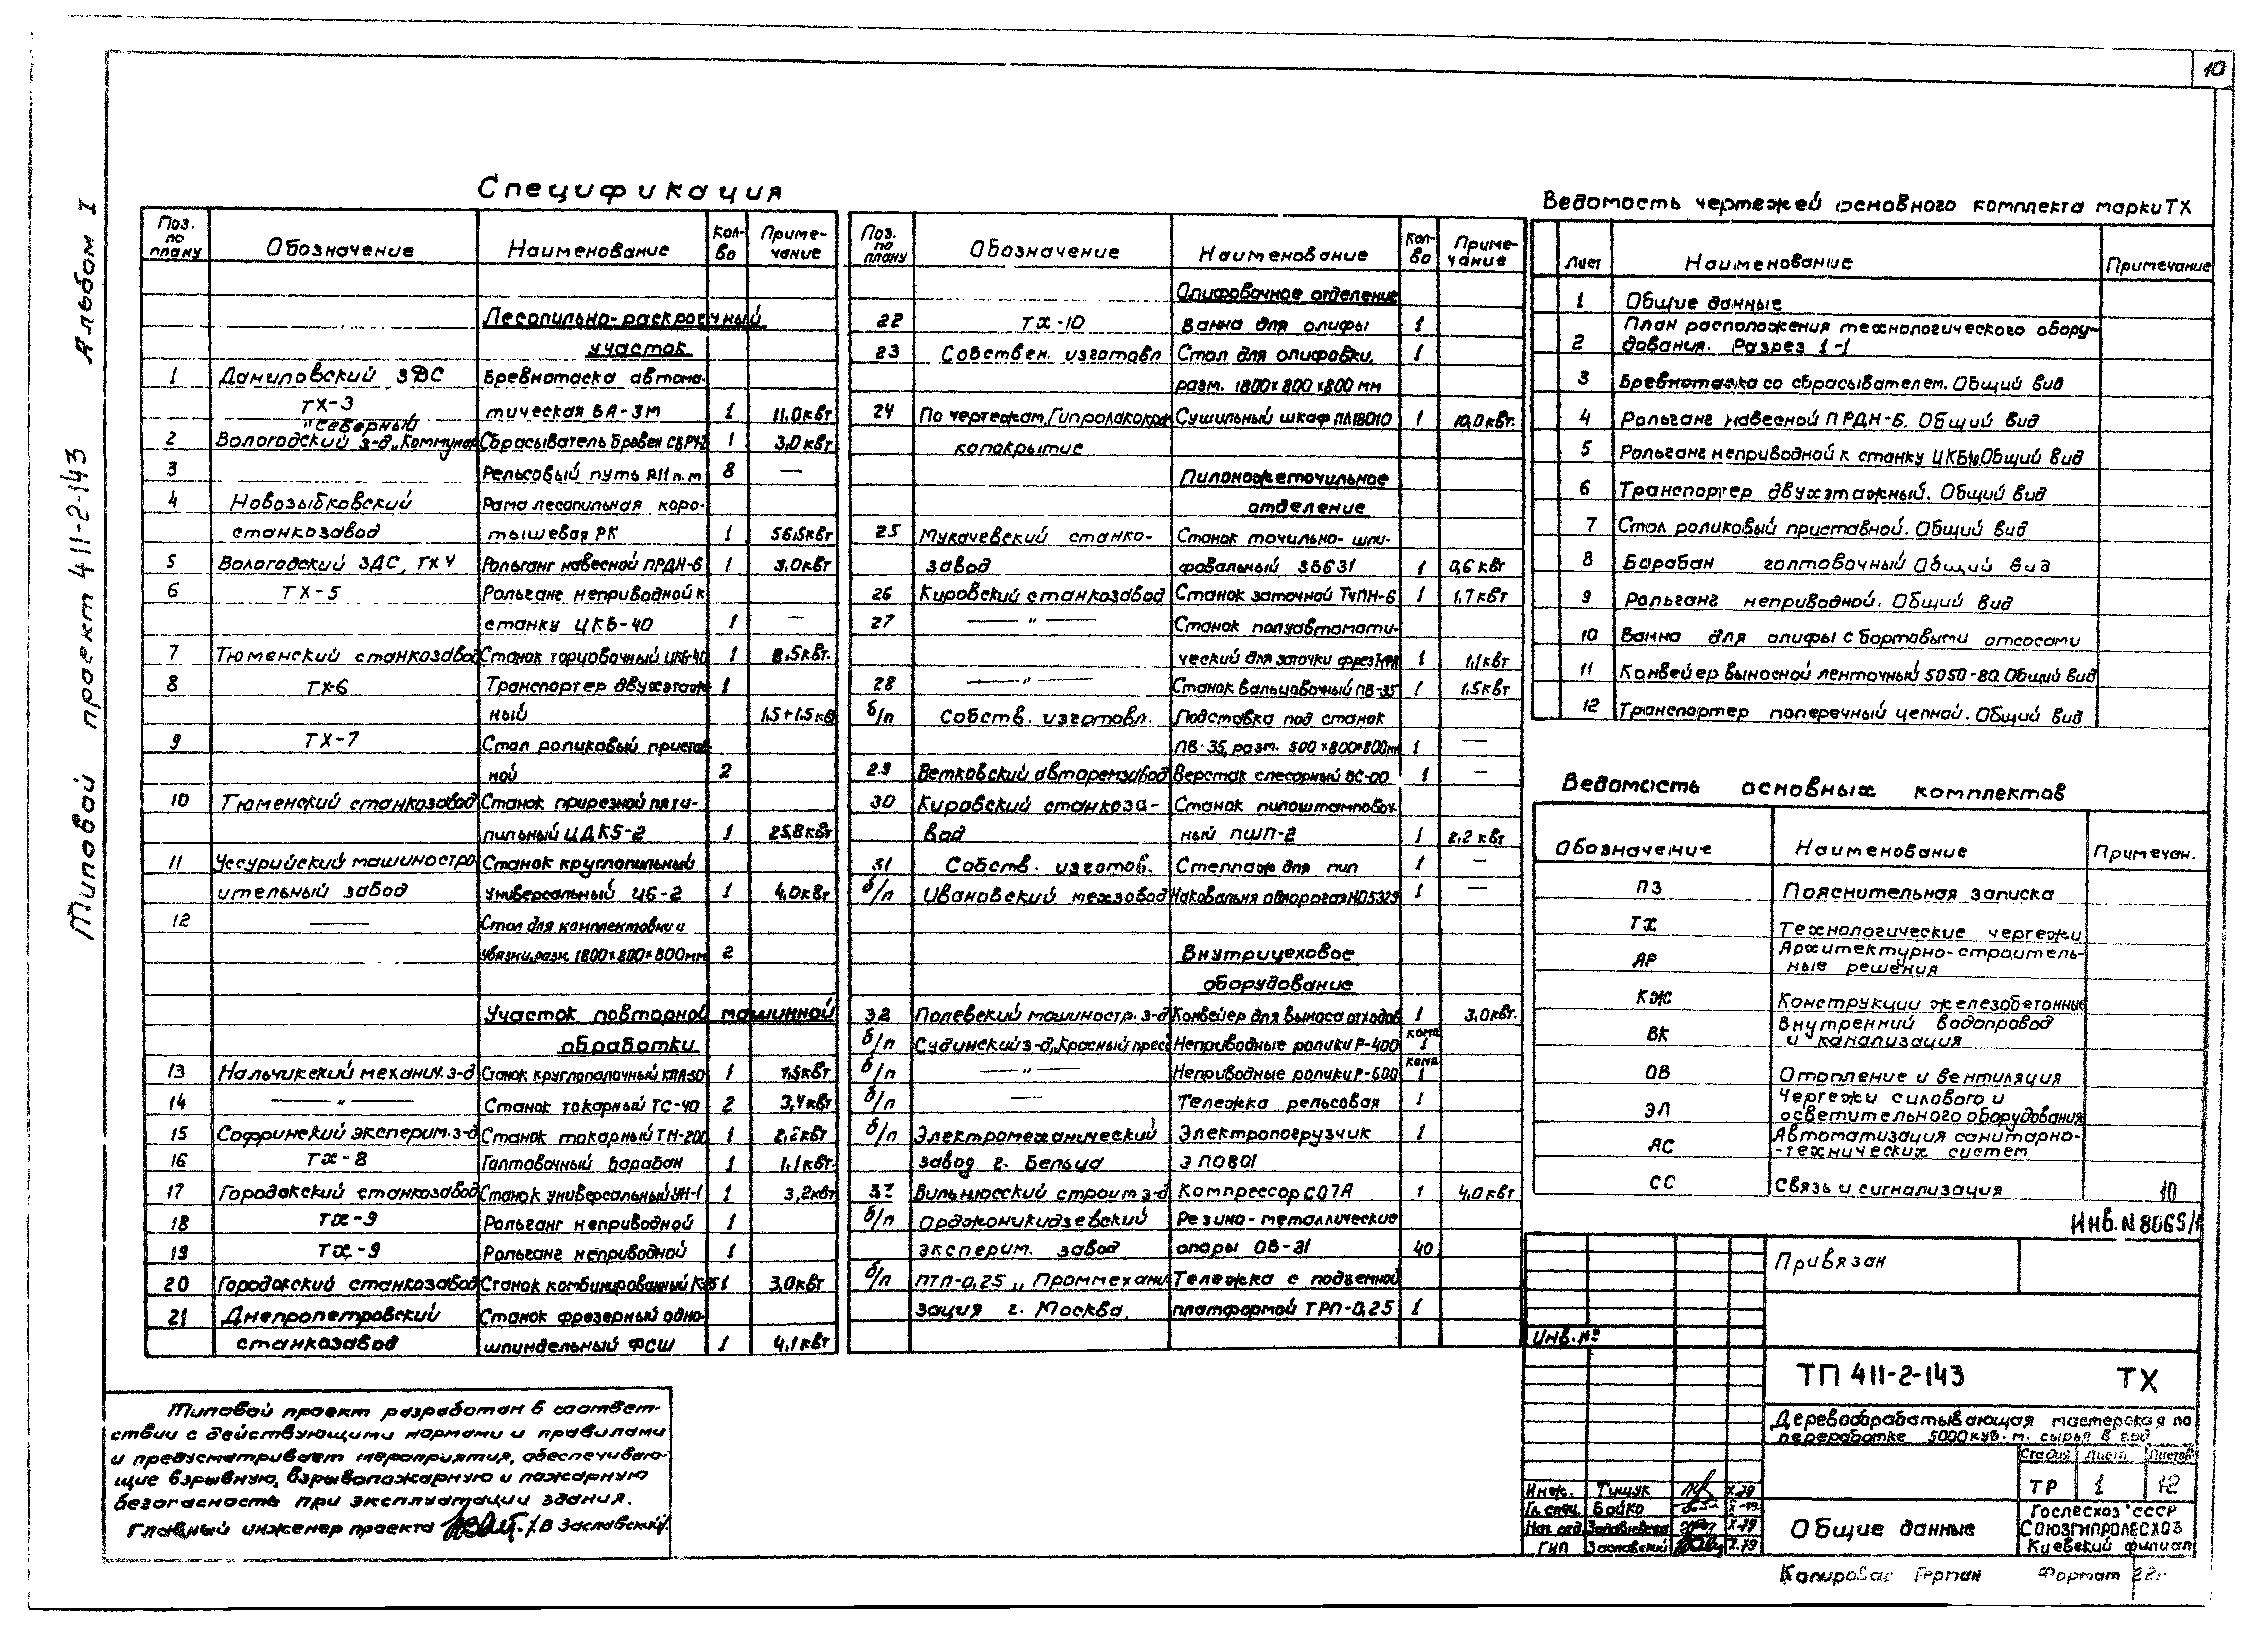 10
Типовой проект 411-2-143 Альбом I
Спецификация
Поз. по плану Обозначение Наименование Кол-во Примечание
Лесопильно-раскроечный
участок
1 Даниловский ЗДС Бревнотаска автома-
ТХ-3 тическая БА-3М 1 11.0 кВт
"Северный
2 Вологодский з-д „Коммунар Сбрасыватель бревен 1 3,0 кВт
3 Рельсовый путь R11 п.м 8 —
4 Новозыбковский Рама лесопильная коро-
станкозавод тышевая РК 1 56,5 кВт
5 Вологодский ЗДС, ТХ 4 Рольганг навесной ПРДН-6 1 3.0 кВт
6 ТХ-5 Рольганг неприводной к
станку ЦКБ-40 1 —
7 Тюменский станкозавод Станок торцовочный ЦКБ-40 1 8,5 кВт.
8 ТХ-6 Транспортер двухэтаж- 1
ный 1.5+1.5 кВ
9 ТХ-7 Стол роликовый пристав-
ной 2
10 Тюменский станкозавод Станок прирезной пяти-
пильный ЦДК5-2 1 25,8 кВт
11 Уссурийский машиностро- Станок круглопильный
ительный завод универсальный Ц6-2 1 4,0 кВт
12 —— Стол для комплектовки и
увязки, разм. 1800×800×800 мм 2
Участок повторной машинной
обработки
13 Нальчикский механич. з-д Станок круглопалочный КПА-50 1 7,5 кВт
14 —— " —— Станок токарный ТС-40 2 3,4 кВт
15 Софринский эксперим. з-д Станок токарный ТН-200 1 2,2 кВт
16 ТХ-8 Галтовочный барабан 1 1,1 кВт.
17 Городокский станкозавод Станок универсальный УН-1 1 3,2 кВт
18 ТХ-9 Рольганг неприводной 1
19 ТХ-9 Рольганг неприводной 1
20 Городокский станкозавод Станок комбинированный 1 3,0 кВт
21 Днепропетровский Станок фрезерный одно-
станкозавод шпиндельный ФСШ 1 4,1 кВт
Поз. по плану Обозначение Наименование Кол-во Примечание
Олифовочное отделение
22 ТХ-10 Ванна для олифы 1
23 Собствен. изготовл Стол для олифовки, 1
разм. 1800×800×800 мм
24 По чертежам „Гипролакокрас Сушильный шкаф 1 10,0 кВт.
копокрытие
Пилоножеточильное
отделение
25 Мукачевский станко- Станок точильно-шли-
завод фовальный 3Б631 1 0,6 кВт
26 Кировский станкозавод Станок заточной ТчПН-6 1 1,7 кВт
27 —— " —— Станок полуавтомати-
ческий для заточки фрез 1 1,1 кВт
28 —— " —— Станок вальцовочный ПВ-35 1 1,5 кВт
б/п Собств. изготовл. Подставка под станок
ПВ-35, разм. 500×800×800 мм 1 —
29 Ветковский авторемзавод Верстак слесарный ВС-00 1 —
30 Кировский станкоза- Станок пилоштамповоч-
вод ный ПШП-2 1 2.2 кВт
31 Собств. изготов. Стеллаж для пил 1 —
б/п Ивановский мехзовод Наковальня однорогая НО5329 1 —
Внутрицеховое
оборудование
32 Полевский машиностр. з-д Конвейер для выноса отходов 1 3,0 кВт.
б/п Судинский з-д „Красный пресс Неприводные ролики Р-400 комп. 1
б/п —— " —— Неприводные ролики Р-600 комп. 1
б/п — Тележка рельсовая 1
б/п Электромеханический Электропогрузчик 1
завод г. Бельцы ЭП0801
33 Вильнюсский строит з-д Компрессор СО7А 1 4,0 кВт
б/п Орджоникидзевский Резино-металлические
эксперим. завод опоры ОВ-31 40
б/п ПТП-0,25 „Проммехани- Тележка с подъемной
зация г. Москва, платформой ТРП-0,25 1
Ведомость чертежей основного комплекта марки ТХ
Лист Наименование Примечание
1 Общие данные
2 План расположения технологического обору-
дования. Разрез 1-1
3 Бревнотаска со сбрасывателем. Общий вид
4 Рольганг навесной ПРДН-6. Общий вид
5 Рольганг неприводной к станку ЦКБ40, Общий вид
6 Транспортер двухэтажный. Общий вид
7 Стол роликовый приставной. Общий вид
8 Барабан голтовочный Общий вид
9 Рольганг неприводной. Общий вид
10 Ванна для олифы с бортовыми отсосами
11 Конвейер выносной ленточный 5050-80. Общий вид
12 Транспортер поперечный цепной. Общий вид
Ведомость основных комплектов
Обозначение Наименование Примечан.
ПЗ Пояснительная записка
ТХ Технологические чертежи
АР Архитектурно-строитель-
ные решения
КЖ Конструкции железобетонные
ВК Внутренний водопровод
и канализация
ОВ Отопление и вентиляция
ЭЛ Чертежи силового и
осветительного оборудования
АС Автоматизация санитарно-
-технических систем
СС Связь и сигнализация
10
Инв. N 8069/1
Привязан
Инв. №
ТП 411-2-143 ТХ
Деревообрабатывающая мастерская по
переработке 5000 куб. м. сырья в год
Стадия Лист Листов
ТР 1 12
Инж. Тищук X.79
Гл. спец. Бойко X-79.
Нач. отд. X.79
ГИП Заславский X.79
Общие данные
Гослесхоз СССР
Союзгипролесхоз
Киевский филиал
Копировал Герман Формат 22г
Типовой проект разработан в соответ-
ствии с действующими нормами и правилами
и предусматривает мероприятия, обеспечиваю-
щие взрывную, взрывопожарную и пожарную
безопасность при эксплуатации здания.
Главный инженер проекта /В Заславский/.